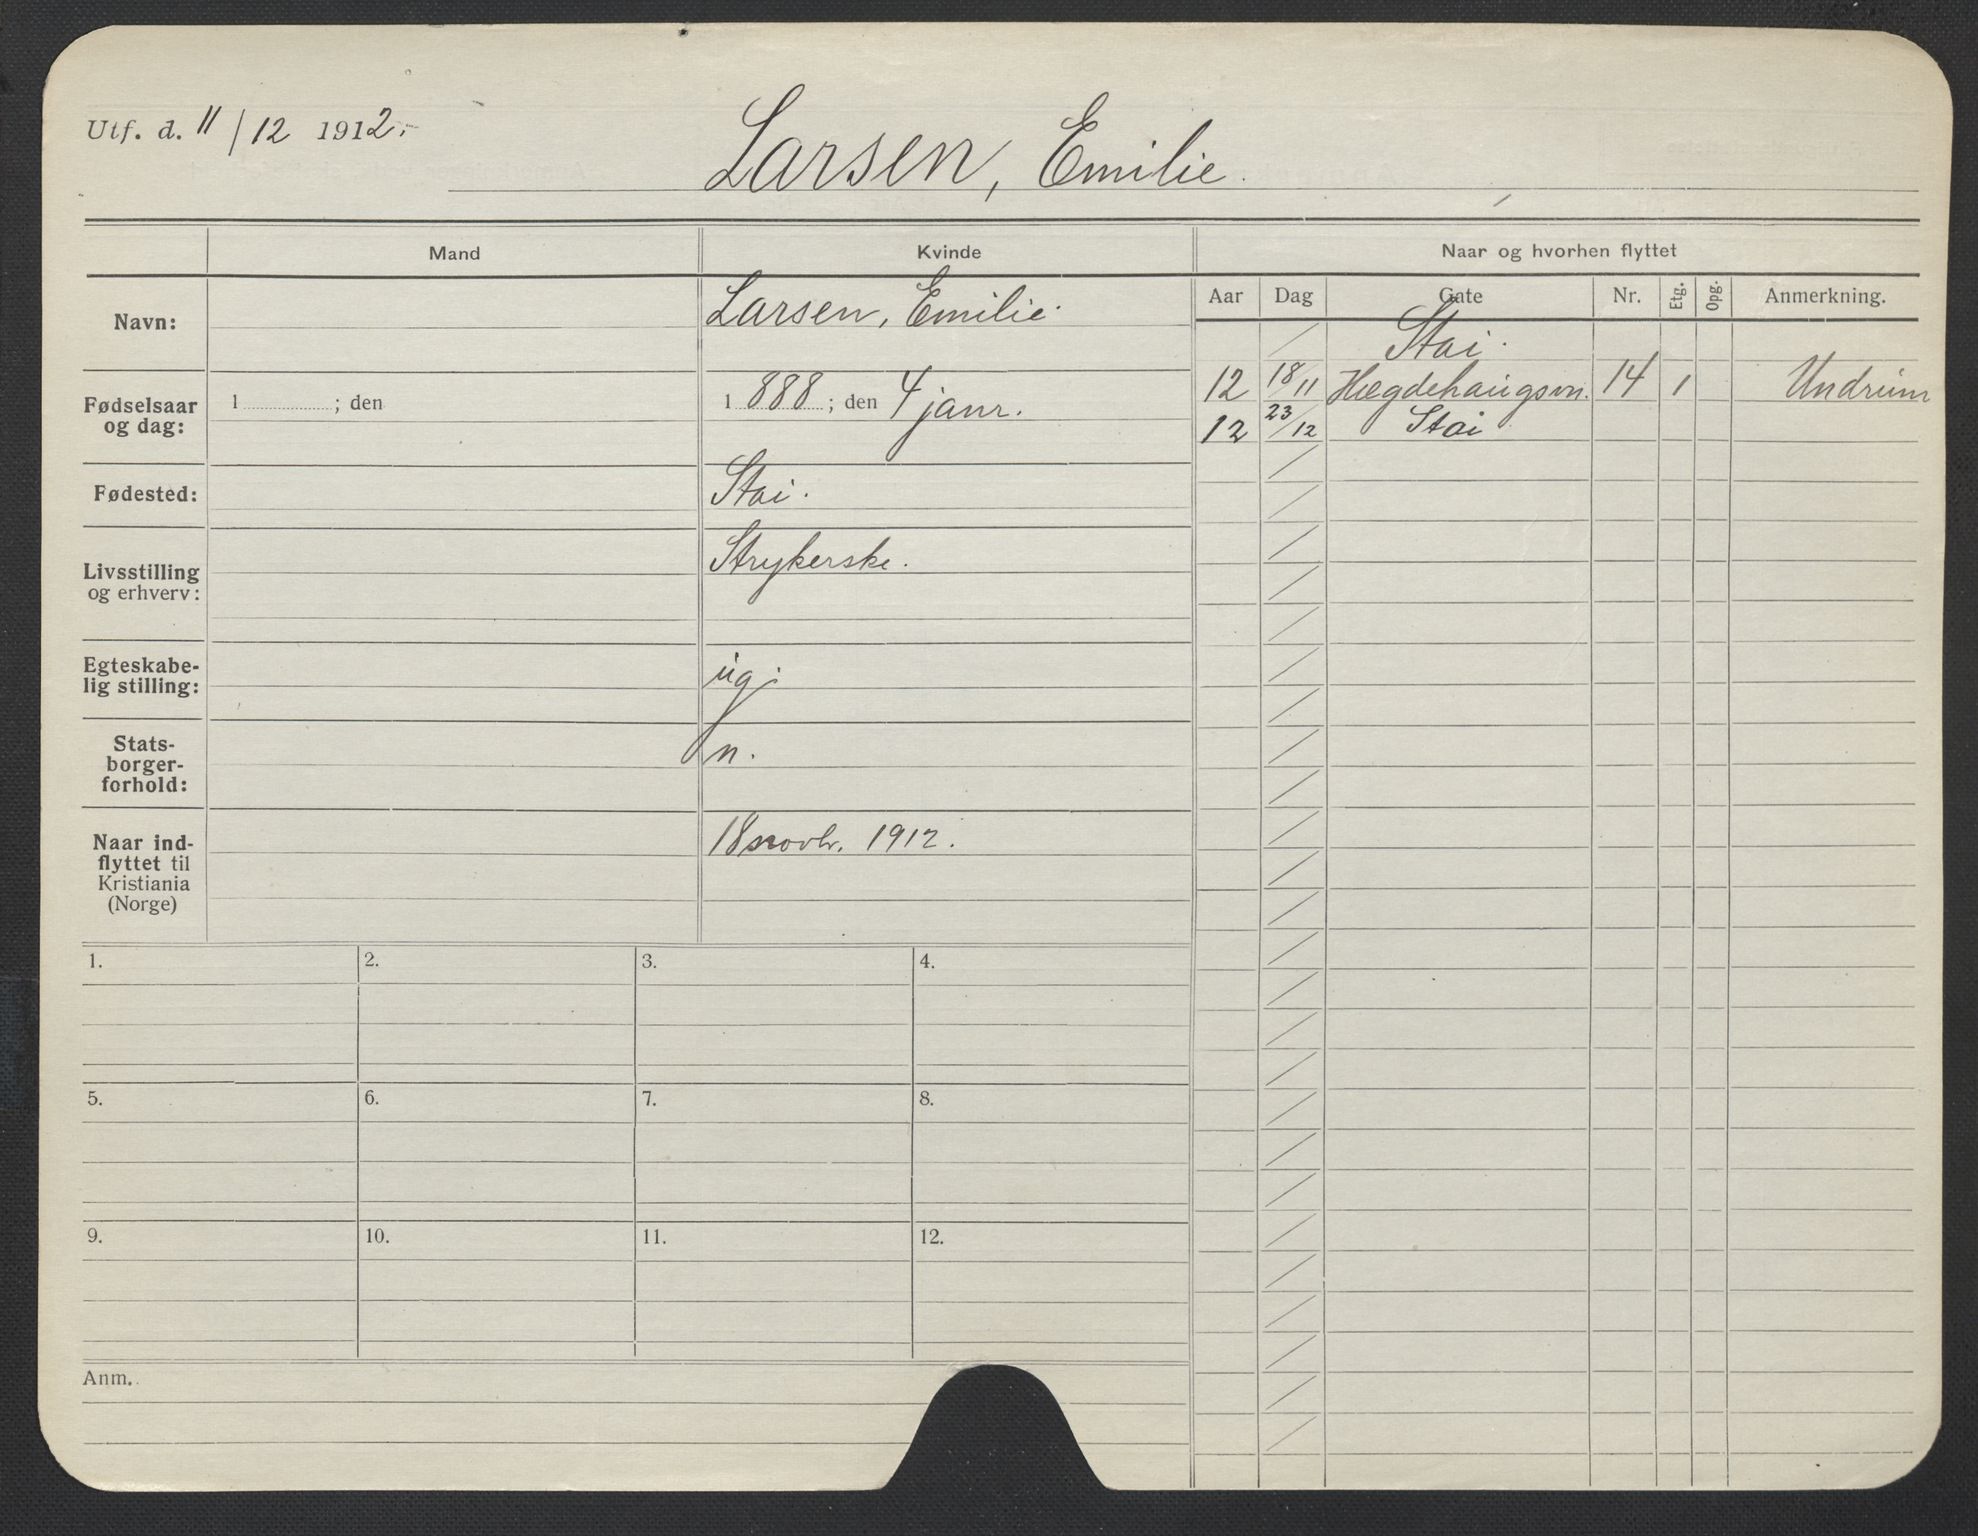 Utf. d. 11/12 1912.
Larsen, Emilie.
Mand Kvinde Naar og hvorhen flyttet
Aar Dag Gate Nr. Etg. Opg. Anmerkning.
Navn: Larsen, Emilie.
Stai.
12 18/11 Hægdehaugsvn. 14 1 Undrum
12 23/12 Stai
Fødselsaar
og dag:
1 ; den
1 888 ; den 4 janr.
Fødested: Stai.
Livsstilling
og erhverv:
Strykerske.
Egteskabe-
lig stilling:
ug.
Stats-
borger-
forhold:
n.
Naar ind-
flyttet til
Kristiania
(Norge)
18 novbr. 1912.
1. 2. 3. 4.
5. 6. 7. 8.
9. 10. 11. 12.
Anm.